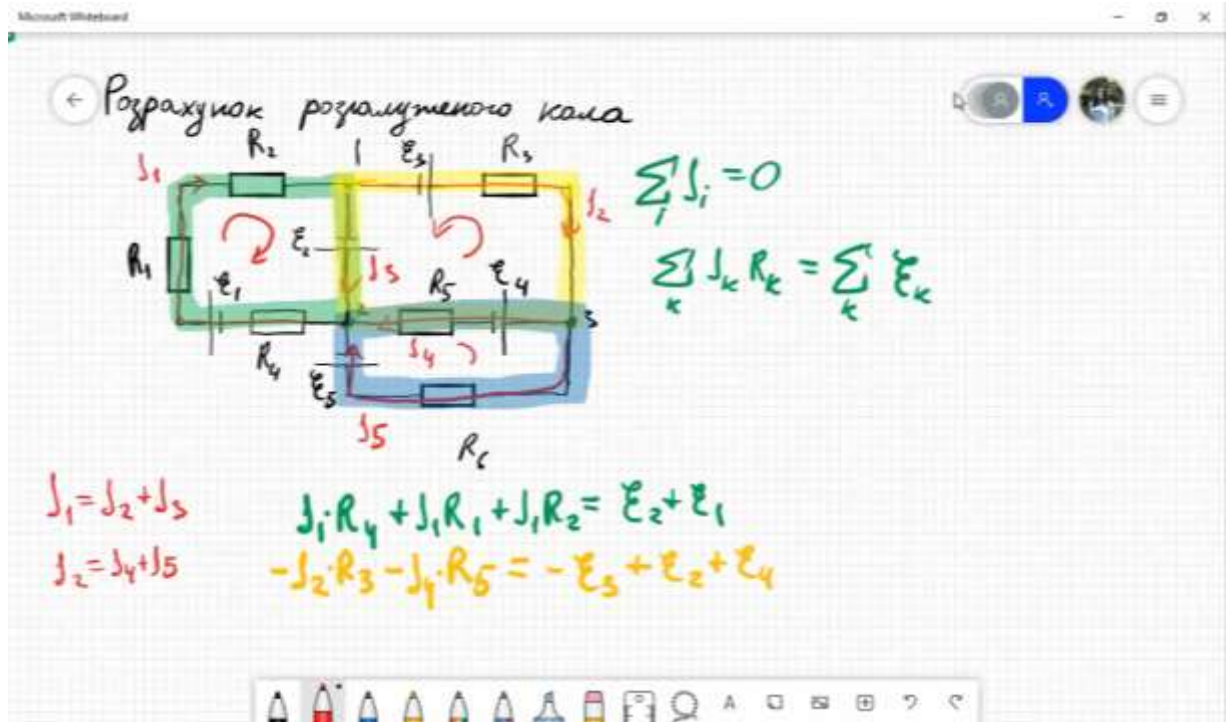 Microsoft Whiteboard
Розрахунок розгалуженого кола
R₂ 1 ℰ₃ R₃
J₁
J₂
R₁ ℰ₂ J₃ R₅ ℰ₄
ℰ₁
3
R₄ J₄
ℰ₅
J₅
R₆
∑ᵢ Jᵢ = 0
∑ₖ JₖRₖ = ∑ₖ ℰₖ
J₁ = J₂ + J₃
J₁·R₄ + J₁R₁ + J₁R₂ = ℰ₂ + ℰ₁
J₂ = J₄ + J₅
-J₂·R₃ - J₄·R₅ = -ℰ₃ + ℰ₂ + ℰ₄
A